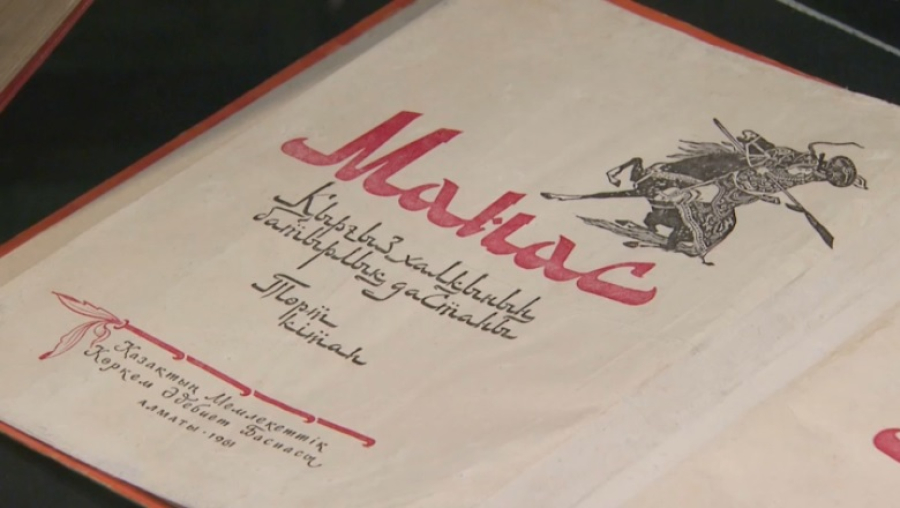 Манас
Қырғыз халқының
батырлық дастаны
Төрт
кітап
Қазақтың Мемлекеттік
Көркем Әдебиет Баспасы
АЛМАТЫ-1961